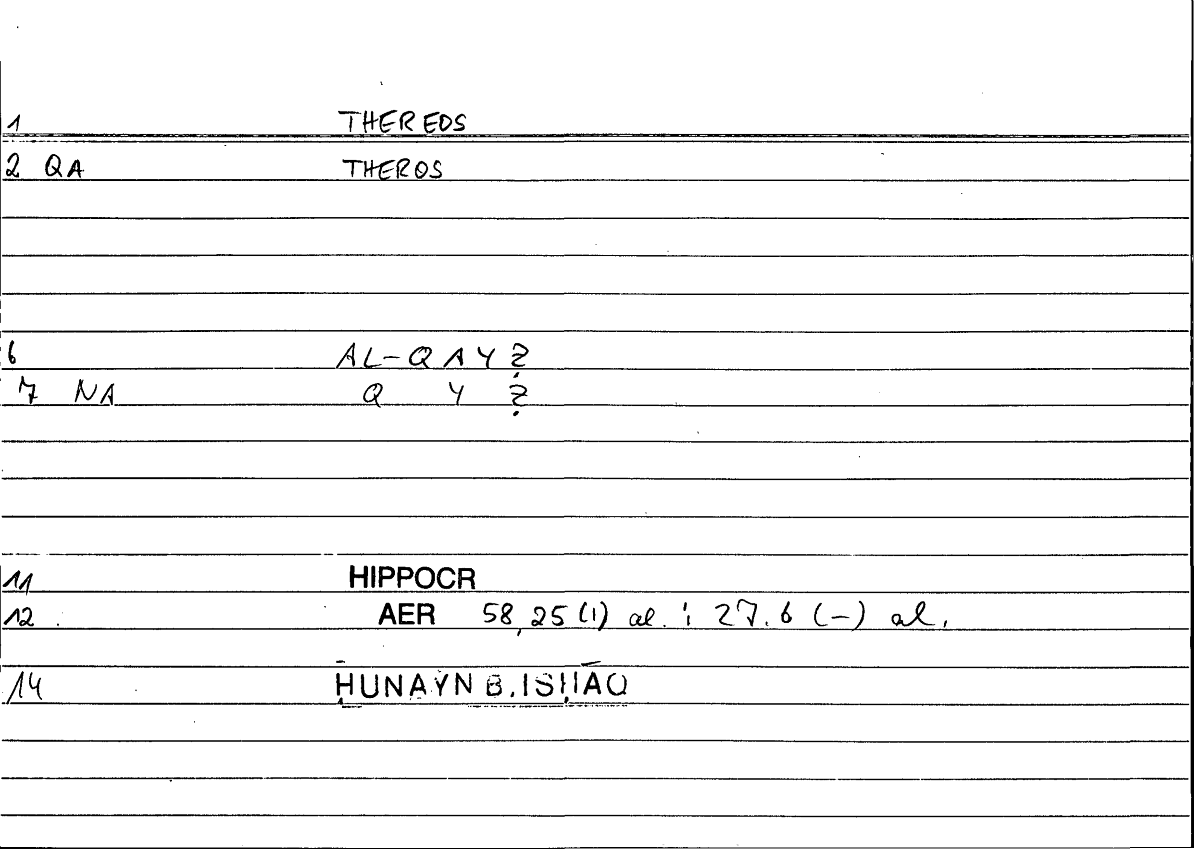 1 THEREOS
2 QA THEROS
6 AL-QAYẒ
7 NA Q Y Ẓ
11 HIPPOCR
12 AER 58,25 (1) al. ; 27.6 (-) al.
14 ḤUNAYN B. ISḤĀQ